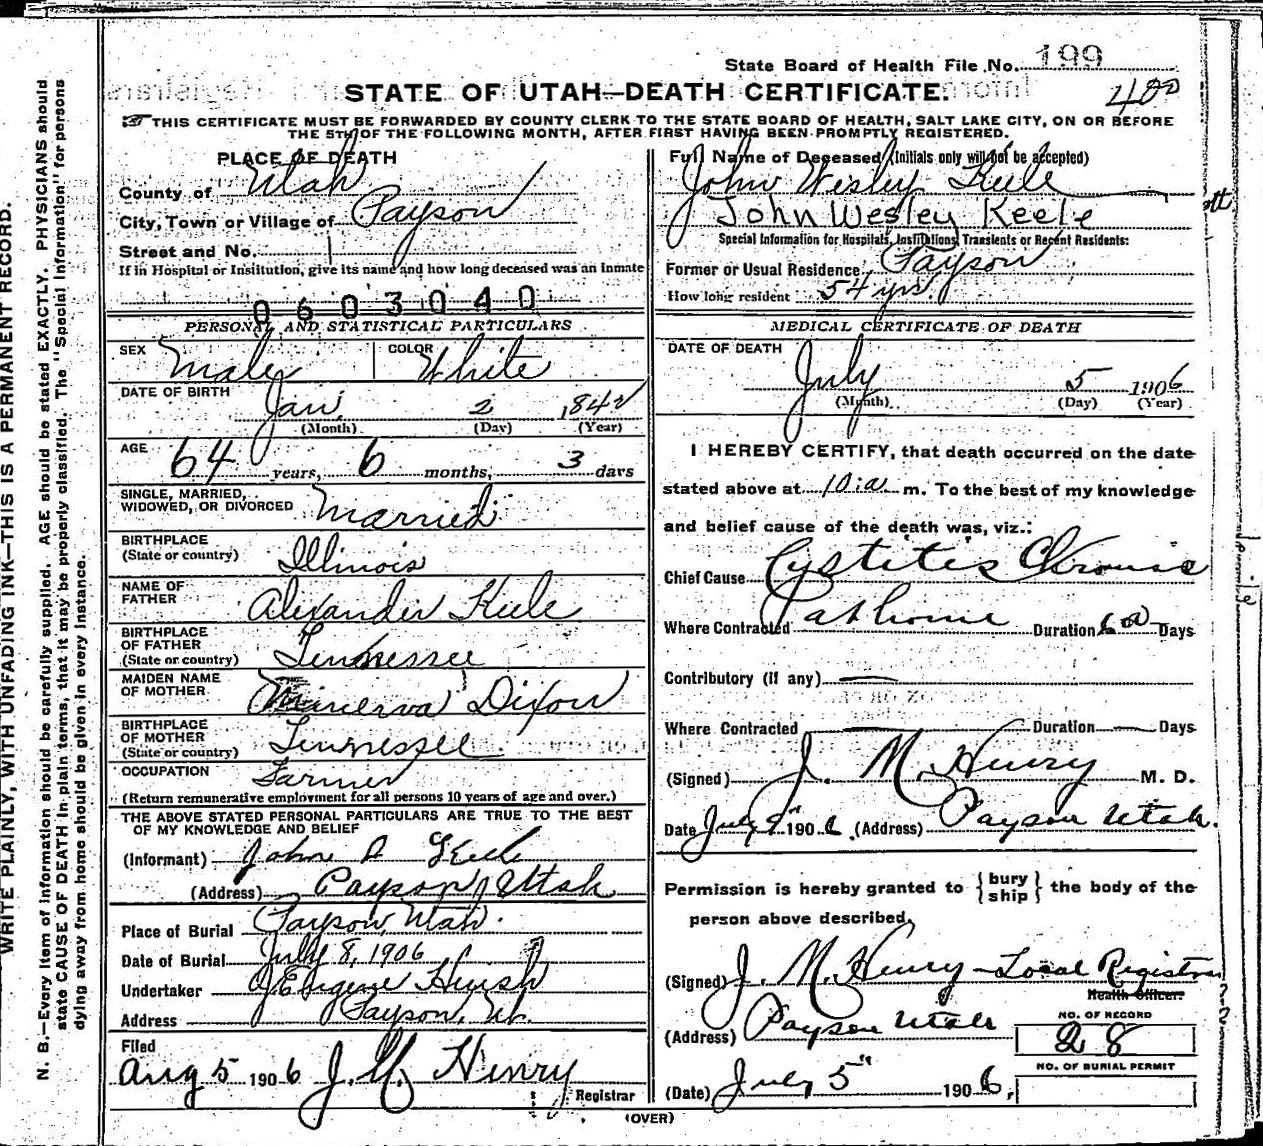 State Board of Health File No. 199
STATE OF UTAH—DEATH CERTIFICATE.
400
THIS CERTIFICATE MUST BE FORWARDED BY COUNTY CLERK TO THE STATE BOARD OF HEALTH, SALT LAKE CITY, ON OR BEFORE
THE 5TH OF THE FOLLOWING MONTH, AFTER FIRST HAVING BEEN PROMPTLY REGISTERED.
WRITE PLAINLY, WITH UNFADING INK—THIS IS A PERMANENT RECORD.
N. B.—Every item of information should be carefully supplied. AGE should be stated EXACTLY. PHYSICIANS should
state CAUSE OF DEATH in plain terms, that it may be properly classified. The "Special Information" for persons
dying away from home should be given in every instance.
PLACE OF DEATH
County of Utah
City, Town or Village of Payson
Street and No.
If in Hospital or Institution, give its name and how long deceased was an Inmate
0603040
PERSONAL AND STATISTICAL PARTICULARS
SEX Male COLOR White
DATE OF BIRTH Jan. 2 1842
(Month) (Day) (Year)
AGE 64 years, 6 months, 3 days
SINGLE, MARRIED,
WIDOWED, OR DIVORCED Married
BIRTHPLACE
(State or country) Illinois
NAME OF
FATHER Alexander Keele
BIRTHPLACE
OF FATHER
(State or country) Tennessee
MAIDEN NAME
OF MOTHER Minerva Dixon
BIRTHPLACE
OF MOTHER
(State or country) Tennessee
OCCUPATION Farmer
(Return remunerative employment for all persons 10 years of age and over.)
THE ABOVE STATED PERSONAL PARTICULARS ARE TRUE TO THE BEST
OF MY KNOWLEDGE AND BELIEF
(Informant) John D Keele
(Address) Payson, Utah
Place of Burial Payson, Utah.
Date of Burial July 8, 1906
Undertaker J Eugene Huish
Address Payson, Ut.
Filed
Aug 5 1906 J. M. Henry
Registrar
Full Name of Deceased (Initials only will not be accepted)
John Wesley Keele
John Wesley Keele
Special Information for Hospitals, Institutions, Transients or Recent Residents:
Former or Usual Residence Payson
How long resident 54 yrs.
MEDICAL CERTIFICATE OF DEATH
DATE OF DEATH July 5 1906
(Month) (Day) (Year)
I HEREBY CERTIFY, that death occurred on the date
stated above at 10:a m. To the best of my knowledge
and belief cause of the death was, viz.:
Chief Cause Cystites Chronic
Where Contracted at home Duration 60 Days
Contributory (if any)
Where Contracted Duration Days
(Signed) J. M. Henry M. D.
Date July 1906 (Address) Payson Utah.
Permission is hereby granted to { bury
ship } the body of the
person above described.
(Signed) J. M. Henry - Local Registrar
Health Officer.
(Address) Payson Utah
NO. OF RECORD
28
NO. OF BURIAL PERMIT
(Date) July 5" 1906.
(OVER)